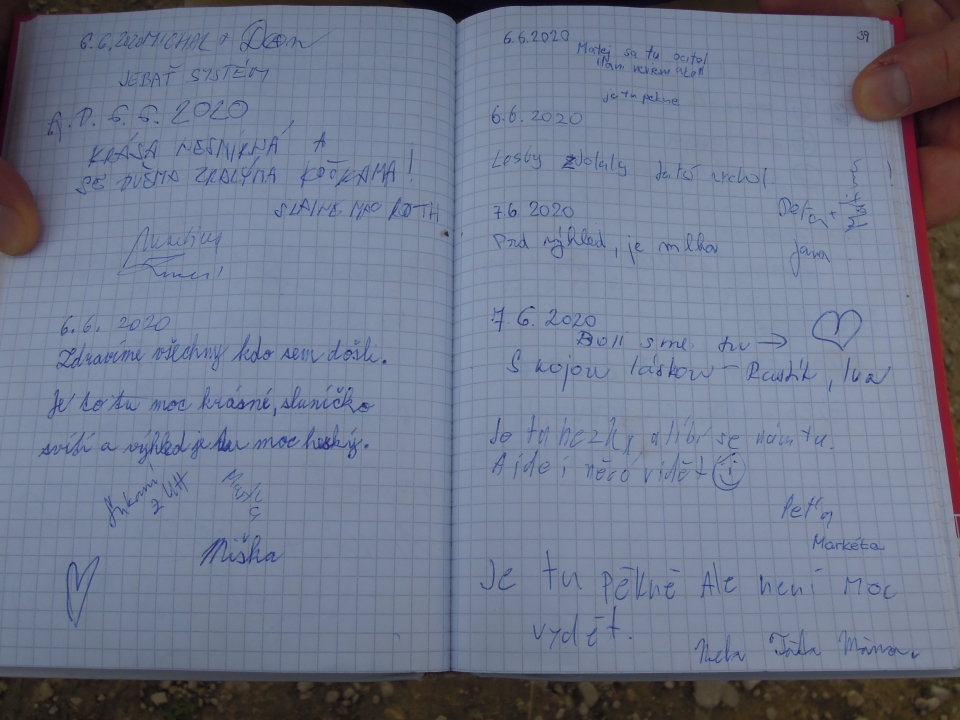 6.6.2020 MICHAL + Dan
JEBAŤ SYSTÉM
A.D. 6.6.2020
KRÁSA NESMÍRNÁ A
SE DVĚMA ZRALÝMA KOČKAMA!
6.6. 2020
Zdravíme všechny kdo sem došli.
Je to tu moc krásné, sluníčko
svítí a výhled je tu moc hezký.
z UH
Miška
39
6.6.2020
Matej sa tu ocitol
je tu pekne
6.6.2020
Losby zdolaly vrchol
7.6.2020
Prd výhled, je mlha
Jana
7.6.2020
Boli sme tu →
S mojou láskou - Rastik, Iva
Je tu hezky, a líbí se nám tu.
A jde i něco vidět
Peťa
Markéta
Je tu Pěkně Ale není moc
vydět.
Nela Táta Máma.